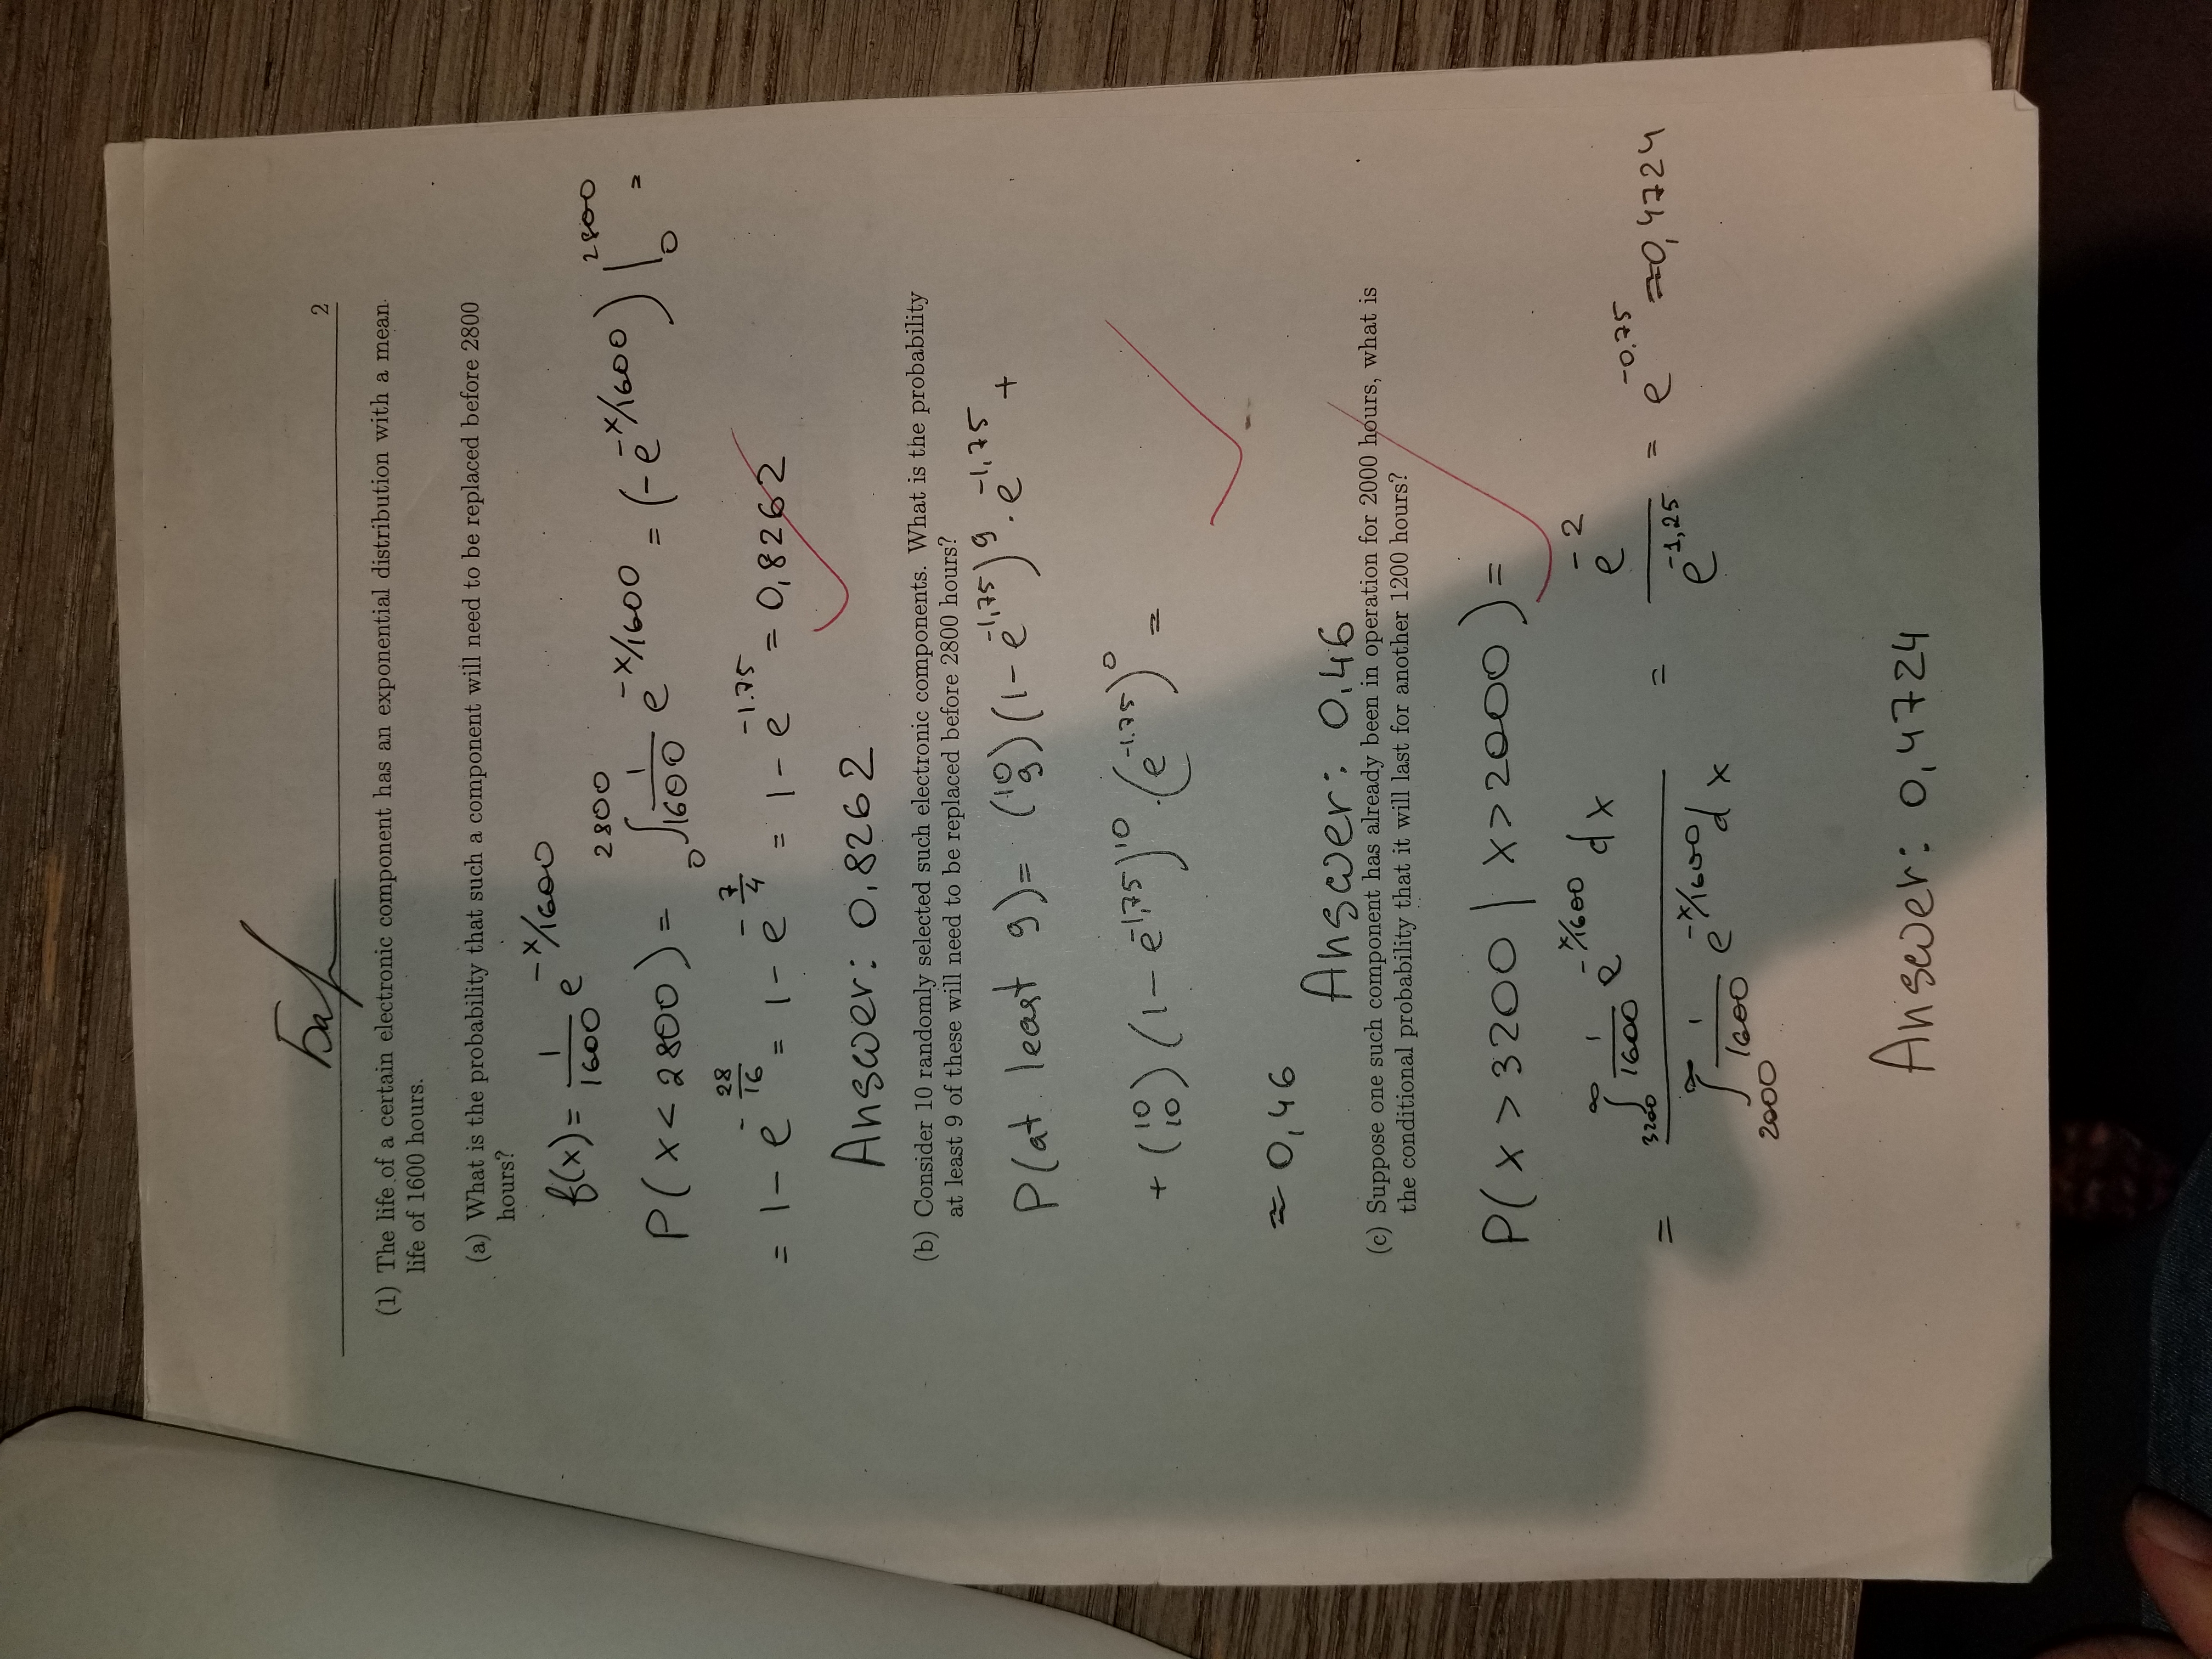 Бар
2
(1) The life of a certain electronic component has an exponential distribution with a mean
life of 1600 hours.
(a) What is the probability that such a component will need to be replaced before 2800
hours?
f(x) = 1/1600 e^(-x/1600)
P(x < 2800) = ∫_0^2800 1/1600 e^(-x/1600) = (-e^(-x/1600))|_0^2800 =
= 1 - e^(-28/16) = 1 - e^(-7/4) = 1 - e^(-1.75) = 0,8262
Answer: 0,8262
(b) Consider 10 randomly selected such electronic components. What is the probability
at least 9 of these will need to be replaced before 2800 hours?
P(at least 9) = (10 9) (1 - e^(-1,75))^9 · e^(-1,75) +
+ (10 10) (1 - e^(-1,75))^10 · (e^(-1.75))^0 =
≈ 0,46
Answer: 0,46
(c) Suppose one such component has already been in operation for 2000 hours, what is
the conditional probability that it will last for another 1200 hours?
P(x > 3200 | x > 2000) =
= ∫_3200^∞ 1/1600 e^(-x/1600) dx / ∫_2000^∞ 1/1600 e^(-x/1600) dx = e^(-2) / e^(-1,25) = e^(-0,75) ≈ 0,4724
Answer: 0,4724